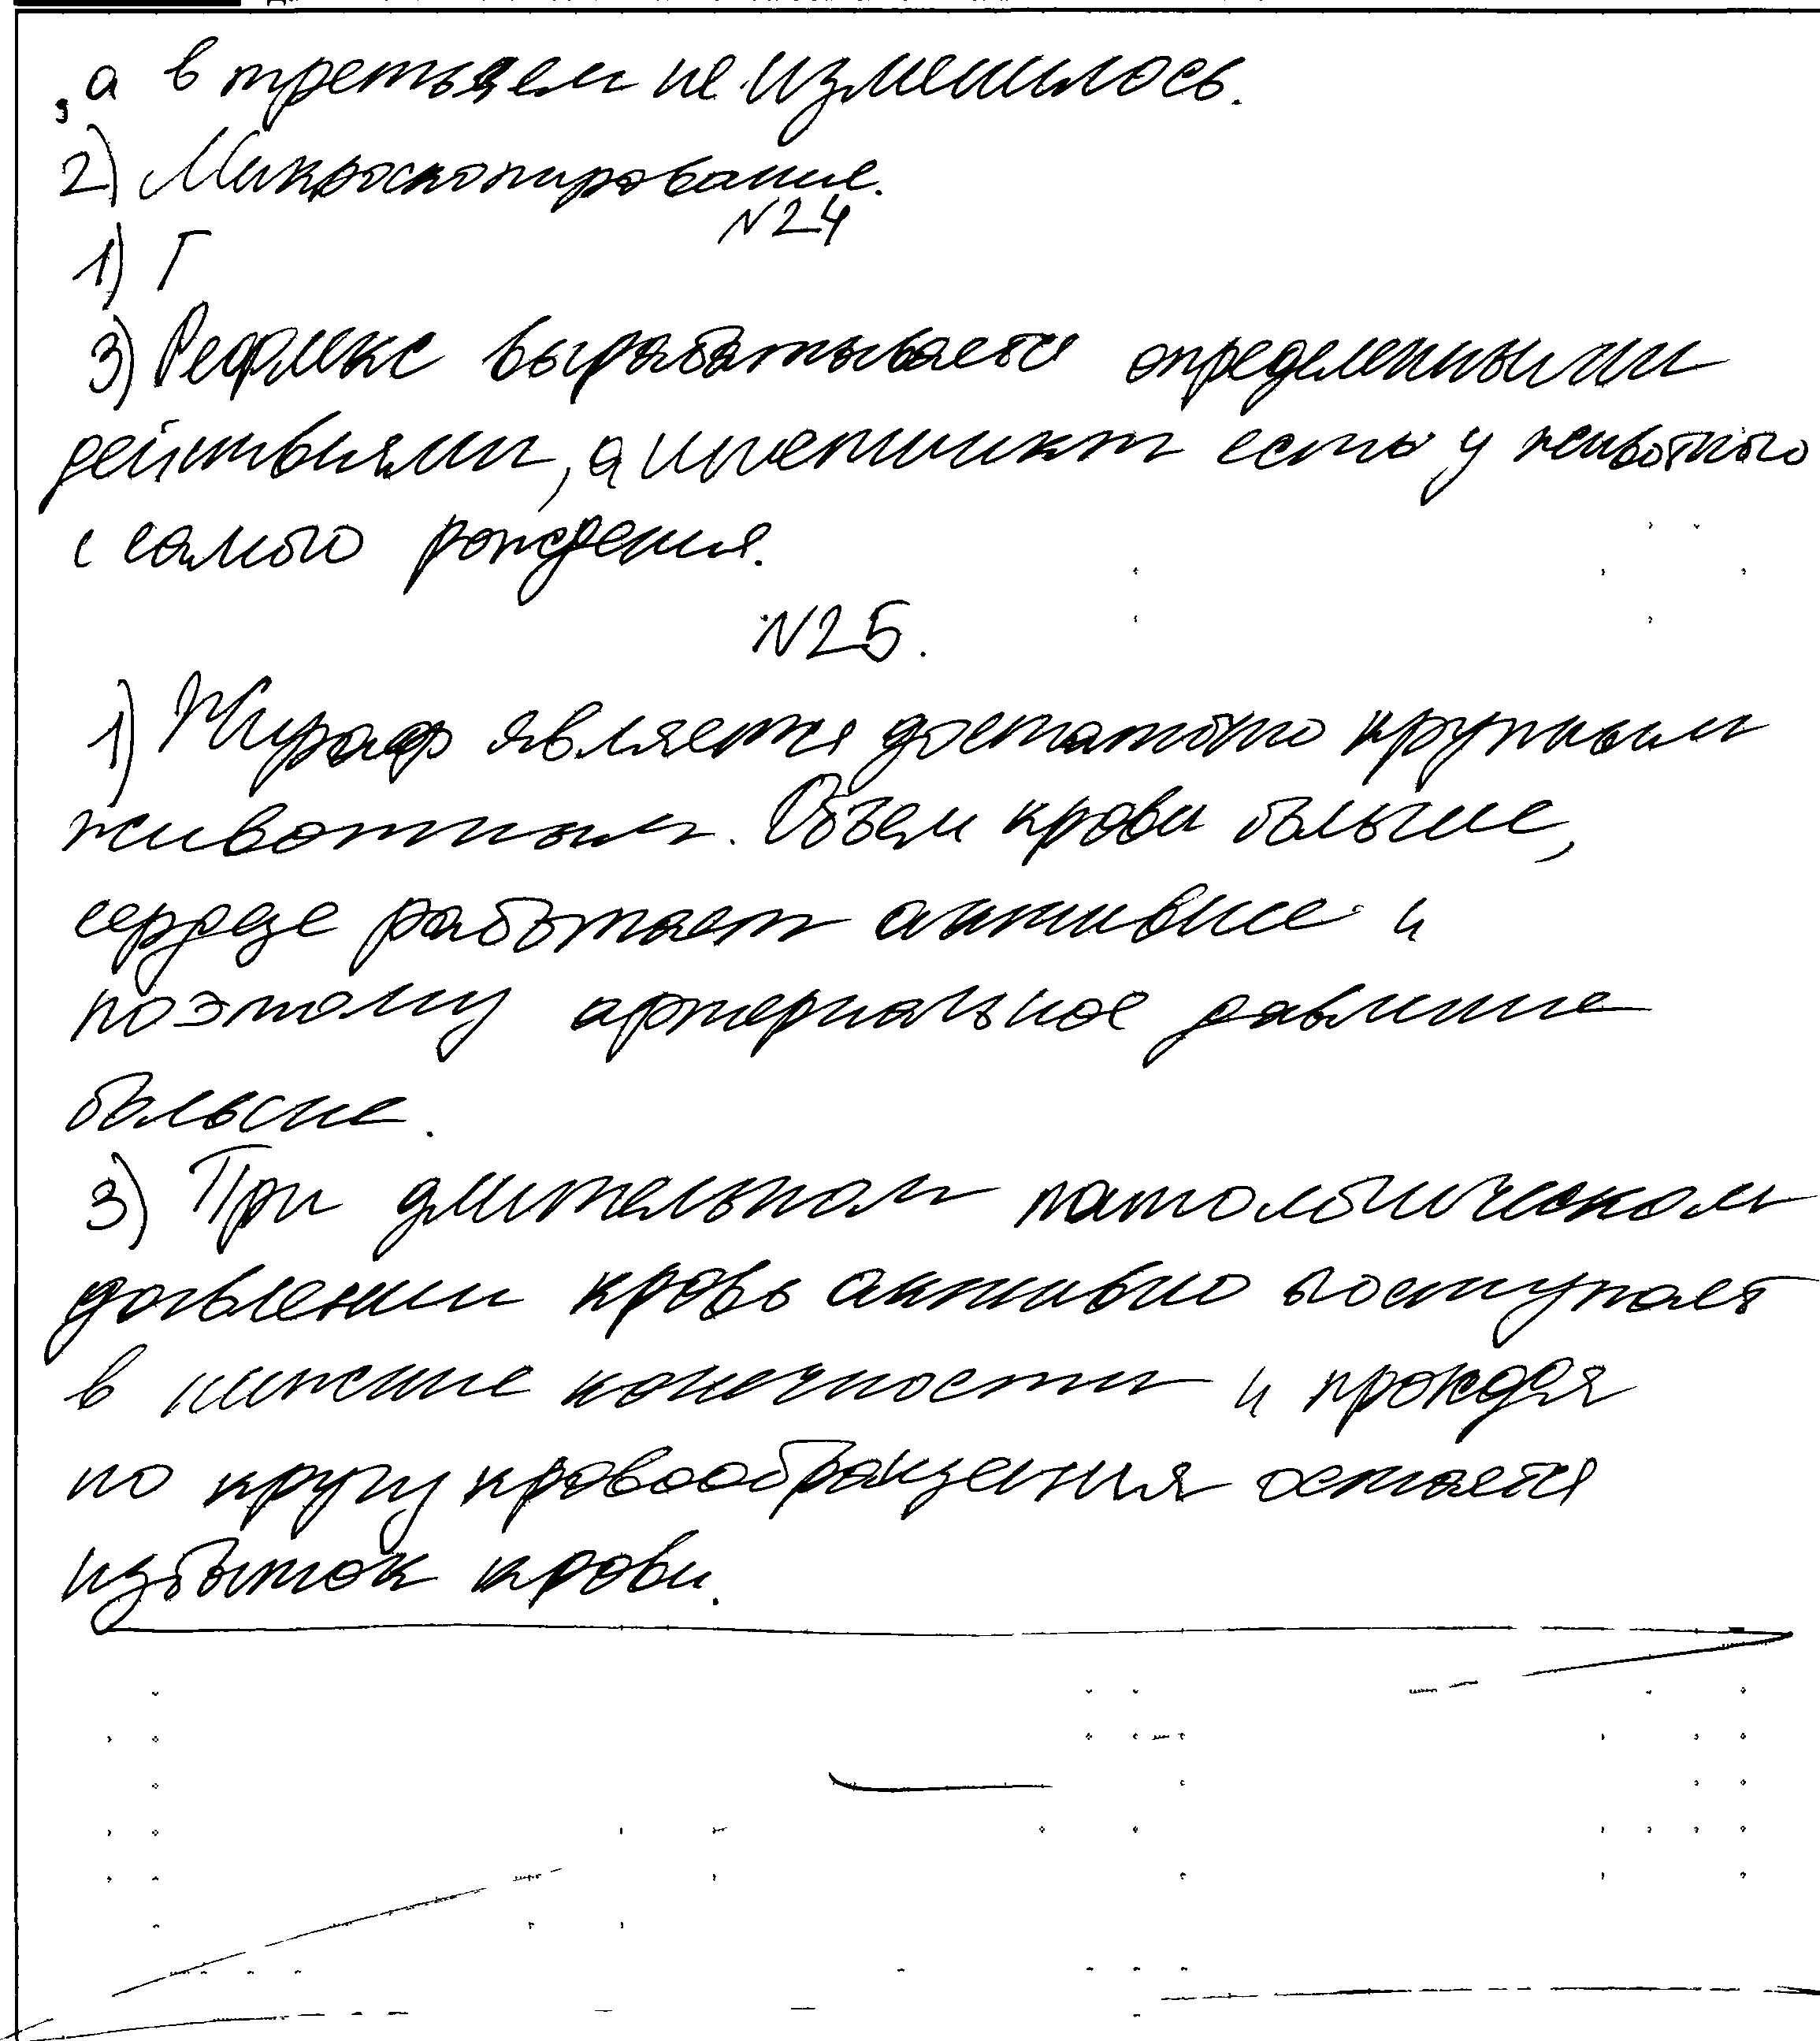 , а в третьем не изменилось.
2) Микроскопирование.
N24
1) Г
3) Рефлекс вырабатывается определенными
действиями, а инстинкт есть у животного
с самого рождения.
N25.
1) Жираф является достаточно крупным
животным. Объем крови больше,
сердце работает активнее и
поэтому артериальное давление
больше.
3) При длительном патологическом
давлении кровь активно поступает
в нижние конечности и пройдя
по кругу кровообращения остается
избыток крови.